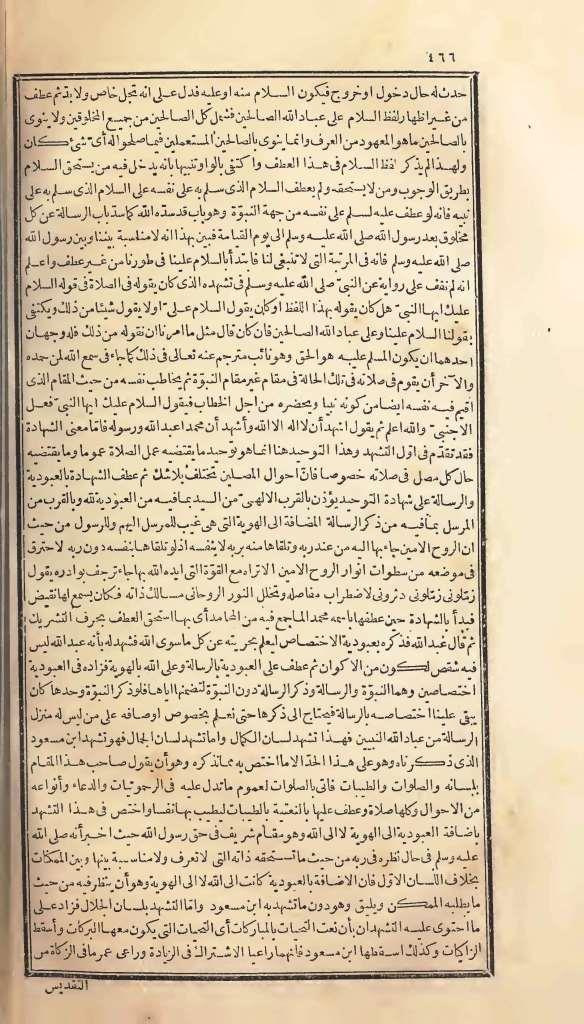 ٤٦٦
حدث له حال دخول أو خروج فيكون السلام منه أو عليه فدل على انه تجل خاص ولا بد ثم عطف
من غير اظهار لفظ السلام على عباد الله الصالحين فشمل كل الصالحين من جميع المخلوقين ولا ينوى
بالصالحين ما هو المعهود من العرف وانما ينوى بالصالحين المستعملين فيما صلحوا له أى شئ كان
ولهذا لم يذكر لفظ السلام فى هذا العطف واكتفى بالواو تنبيها بأنه يدخل فيه من يستحق السلام
بطريق الوجوب ومن لا يستحقه ولم يعطف السلام الذى سلم به على نفسه على السلام الذى سلم به على
نبيه فانه لو عطف عليه لسلم على نفسه من جهة النبوّة وهو باب قد سده الله كما سد باب الرسالة عن كل
مخلوق بعد رسول الله صلى الله عليه وسلم الى يوم القيامة فتبين بهذا انه لا مناسبة بيننا وبين رسول الله
صلى الله عليه وسلم فانه فى المرتبة التى لا تنبغى لنا فابتدأنا بالسلام علينا فى طورنا من غير عطف واعلم
انه لم نقف على رواية عن النبىّ صلى الله عليه وسلم فى تشهده الذى كان يقوله فى الصلاة فى قوله السلام
عليك ايها النبىّ هل كان يقوله بهذا اللفظ أو كان يقول السلام علىّ أو لا يقول شيئا من ذلك ويكتفى
بقولنا السلام علينا وعلى عباد الله الصالحين فان كان قال مثل ما امرنا ان نقوله من ذلك فله وجهان
احدهما ان يكون المسلم عليه هو الحق وهو نائب مترجم عنه تعالى فى ذلك كما جاء فى سمع الله لمن حمده
والآخر أن يقوم فى صلاته فى تلك الحالة فى مقام غير مقام النبوّة ثم يخاطب نفسه من حيث المقام الذى
اقيم فيه نفسه ايضا من كونه نبيا ويحضره من اجل الخطاب فيقول السلام عليك ايها النبىّ فعل
الاجنبىّ والله اعلم ثم يقول اشهد أن لا اله الا الله وأشهد أن محمدا عبد الله ورسوله فأما معنى الشهادة
فقد تقدّم فى اوّل التشهد وهذا التوحيد هنا انما هو توحيد ما يقتضيه عمل الصلاة عموما وما يقتضيه
حال كل مصل فى صلاته خصوصا فانّ احوال المصلين تختلف بلا شك ثم عطف الشهادة بالعبودية
والرسالة على شهادة التوحيد يؤذن بالقرب الالهىّ من السيد بما فيه من العبودية لله وبالقرب من
المرسل بما فيه من ذكر الرسالة المضافة الى الهوية التى هى غيب للمرسل اليهم وللرسول من حيث
ان الروح الامين جاء بها اليه من عند ربه وتلقاها منه بربه لا بنفسه اذ لو تلقاها بنفسه دون ربه لاحترق
فى موضعه من سطوات انوار الروح الامين الا تراه مع القوّة التى ايده الله بها جاء ترجف بوادره يقول
زملونى زملونى دثرونى لاضطراب مفاصله وتخلل النور الروحانى مسالك ذاته فكان يسمع لها نقيض
فبدأ بالشهادة حين عطفها باسمه محمد لما جمع فيه من المحامد أى بها استحق العطف بحرف التشريك
ثم قال عبد الله فذكره بعبودية الاختصاص ليعلم بحريته عن كل ما سوى الله فشهد له بأنه عبد الله ليس
فيه شقص لكون من الاكوان ثم عطف على العبودية بالرسالة وعلى الله بالهوية فزاده فى العبودية
اختصاصين وهما النبوّة والرسالة وذكر الرسالة دون النبوّة لتضمنها اياها فلو ذكر النبوّة وحدها كان
يبقى علينا اختصاصه بالرسالة فيحتاج الى ذكرها حتى نعلم بخصوص اوصافه على من ليس له منزل
الرسالة من عباد الله النبيين فهذا تشهد لسان الكمال واما تشهد لسان الجمال فهو تشهد ابن مسعود
الذى ذكرناه وهو على هذا الحدّ الا ما اختص به مما تذكره وهو أن يقول صاحب هذا المقام
بلسانه والصلوات والطيبات فأتى بالصلوات لعموم ما تدل عليه فى الرحموتيات والدعاء وأنواعه
من الاحوال وكلها صلاة وعطف عليها بالنعتية بالطيبات ليطيب بها نفسا واختص فى هذا التشهد
باضافة العبودية الى الهوية لا الى الله وهو مقام شريف فى حق رسول الله حيث اخبر أنه صلى الله
عليه وسلم فى حال نظره فى ربه من حيث ما تستحقه ذاته التى لا تعرف ولا مناسبة بينها وبين الممكنات
بخلاف اللسان الاوّل فان الاضافة بالعبودية كانت الى الله لا الى الهوية وهو أن ينظر فيه من حيث
ما يطلبه الممكن ويليق وهو دون ما تشهد به ابن مسعود واما التشهد بلسان الجلال فزاد على
ما احتوى عليه التشهدان بأن نعت التحيات بالمباركات أى التحيات التى يكون معها البركات وأسقط
الزاكيات وكذلك اسقطها ابن مسعود فانهما راعيا الاشتراك فى الزيادة وراعى عمر ما فى الزكاة من
التقديس